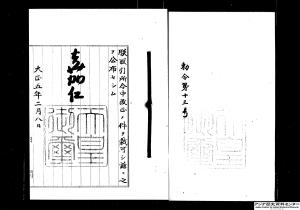 勅令第十三号
朕取引所令中改正ノ件ヲ裁可シ茲ニ之
ヲ公布セシム
嘉仁
天皇御璽
大正五年二月八日
アジア歴史資料センター